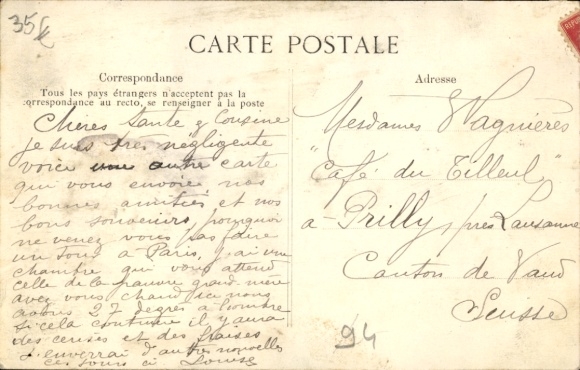 35 f
CARTE POSTALE
Correspondance
Tous les pays étrangers n'acceptent pas la
correspondance au recto, se renseigner à la poste
Chères Tante & Cousine
je suis très négligente
voici une autre carte
qui vous envoie nos
bonnes amitiés et nos
bons souvenirs, pourquoi
ne venez vous pas faire
un tour à Paris, j'ai une
chambre qui vous attend
celle de la pauvre grand mère
avez vous chaud ici nous
avons 27 degrés à l'ombre
si cela continue il y aura
des cerises et des fraises
J'enverrai d'autres nouvelles
ces jours ci Louise
Adresse
Mesdames Wagnières
"Café du Tilleul"
à Prilly, près Lausanne
Canton de Vaud
Suisse
94